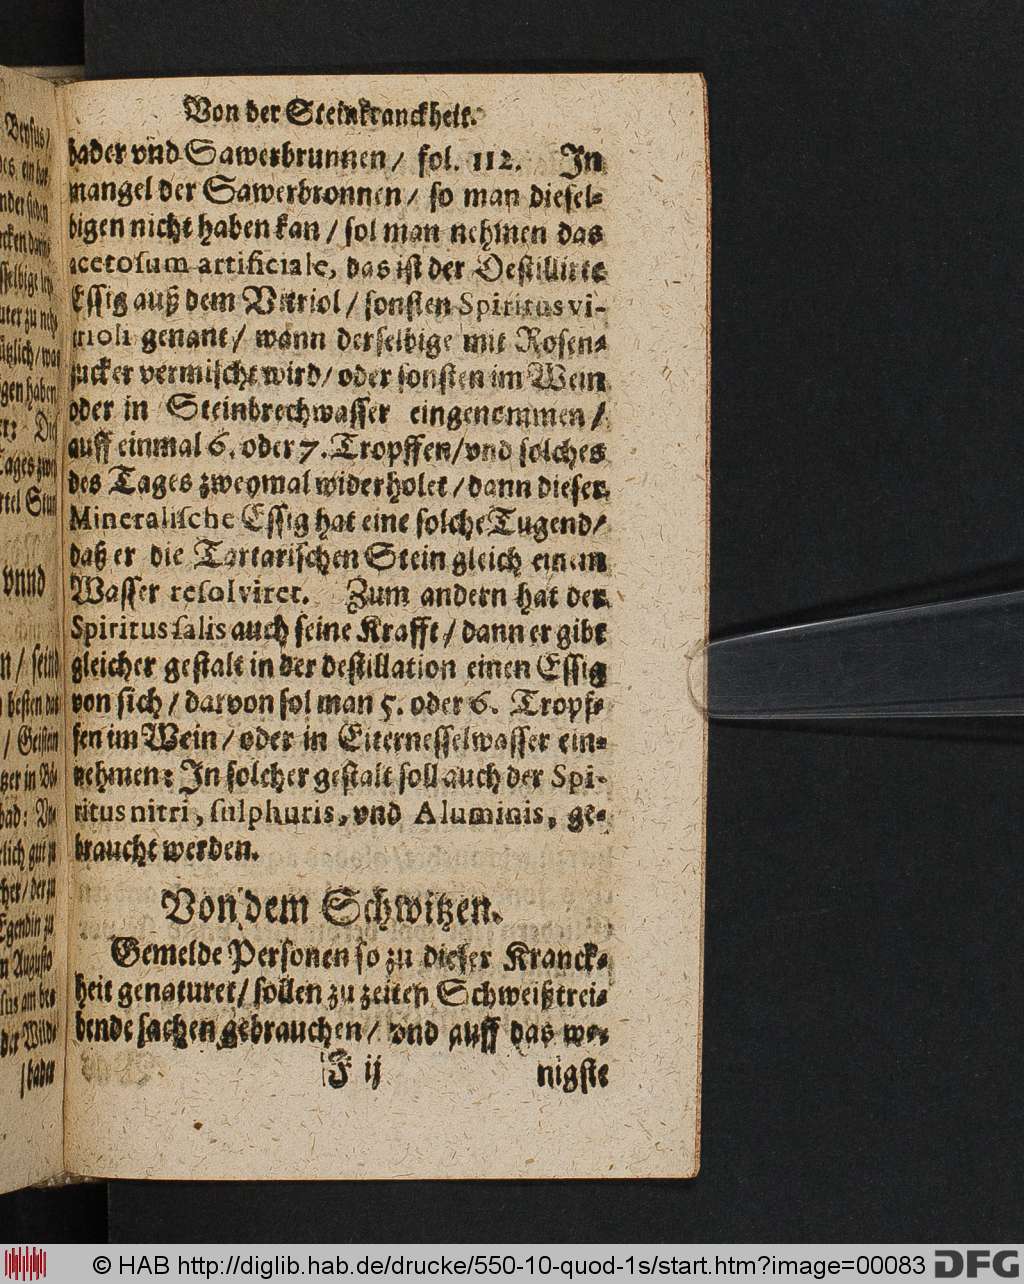 Von der Steinkranckheit.
bader vnd Sawerbrunnen / fol. 112. In
mangel der Sawerbronnen / so man diesel-
bigen nicht haben kan / sol man nehmen das
acetosum artificiale, das ist der Destillirte
Essig auß dem Vitriol / sonsten Spiritus vi-
trioli genant / wann derselbige mit Rosen-
zucker vermischt wird / oder sonsten im Wein
oder in Steinbrechwasser eingenommen /
auff einmal 6. oder 7. Tropffen / vnd solches
des Tages zweymal widerholet / dann dieser
Mineralische Essig hat eine solche Tugend /
daß er die Tartarischen Stein gleich einem
Wasser resolviret. Zum andern hat der
Spiritus salis auch seine Krafft / dann er gibt
gleicher gestalt in der destillation einen Essig
von sich / darvon sol man 5. oder 6. Tropf-
fen im Wein / oder in Eiternesselwasser ein-
nehmen: In solcher gestalt soll auch der Spi-
ritus nitri, sulphuris, vnd Aluminis, ge-
braucht werden.
Von dem Schwitzen.
Gemelde Personen so zu dieser Kranck-
heit genaturet / sollen zu zeiten Schweißtrei-
bende sachen gebrauchen / vnd auff das we-
F ij nigste
© HAB http://diglib.hab.de/drucke/550-10-quod-1s/start.htm?image=00083 DFG